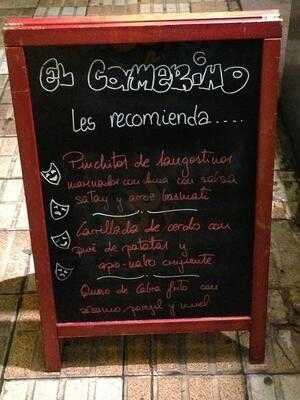 EL COMMERIMO
Les recomienda....
Pinchitos de langostinos
marinados con lima con salsa
satay y arroz basmati
Carrillada de cerdo con
puré de patatas y
apo-nabo crujiente
Queso de Cabra frito con
sésamo perejil y miel